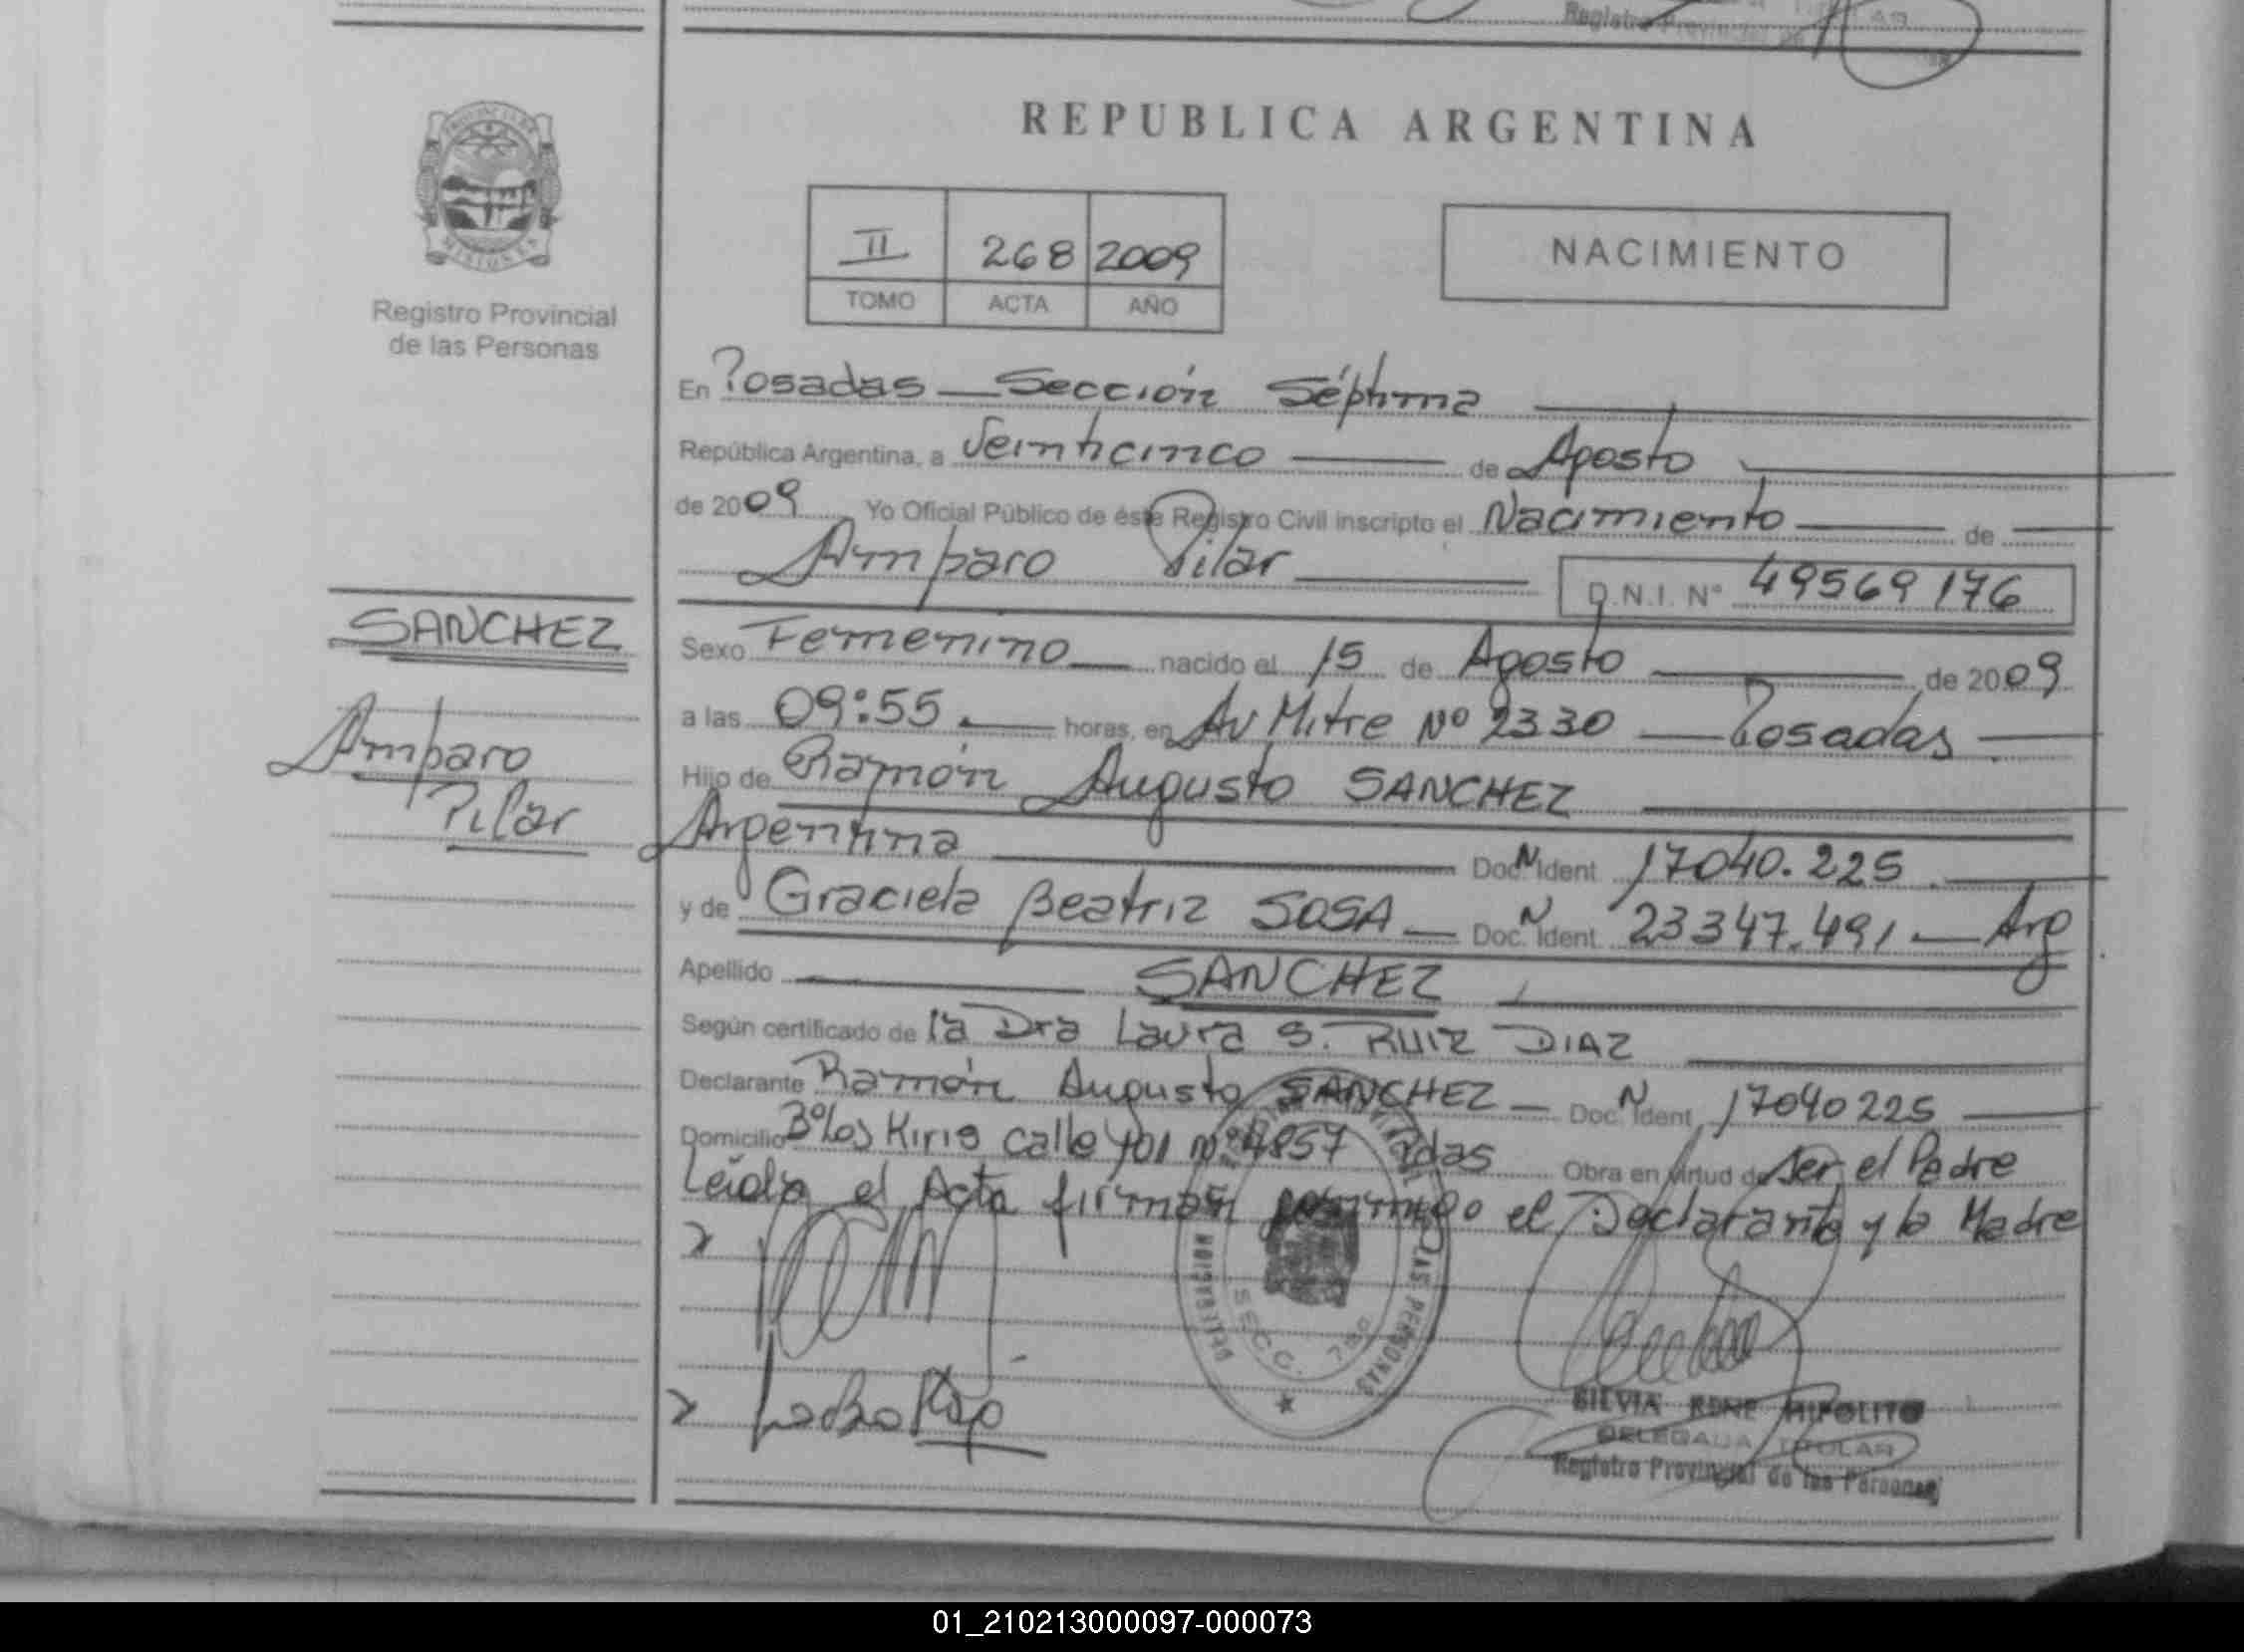 Registro Provincial de
REPUBLICA ARGENTINA
MISIONES
Registro Provincial
de las Personas
II 268 2009
TOMO ACTA AÑO
NACIMIENTO
En Posadas — Sección Séptima
República Argentina, a Veinticinco de Agosto
de 2009 Yo Oficial Público de éste Registro Civil inscripto el Nacimiento de
Amparo Pilar
D.N.I. N° 49569176
SANCHEZ
Amparo
Pilar
Sexo Femenino nacido el 15 de Agosto de 2009
a las 09:55 horas, en Av Mitre Nº 2330 — Posadas
Hijo de Ramón Augusto SANCHEZ
Argentina Doc. N Ident 17040.225
y de Graciela Beatriz SOSA — Doc. N Ident. 23347.491 — Arg
Apellido SANCHEZ
Según certificado de la Dra Laura S. RUIZ DIAZ
Declarante Ramón Augusto SANCHEZ — Doc. N Ident. 17040225
Domicilio Bº Los Kiris calle 101 nº 4857 Pdas Obra en virtud de Ser el Padre
Leída el Acta firman conmigo el Declarante y la Madre
DELEGACION
LAS PERSONAS
SECC. 7ma
SILVIA RENE HIPOLITO
DELEGADA TITULAR
Registro Provincial de las Personas
01_210213000097-000073